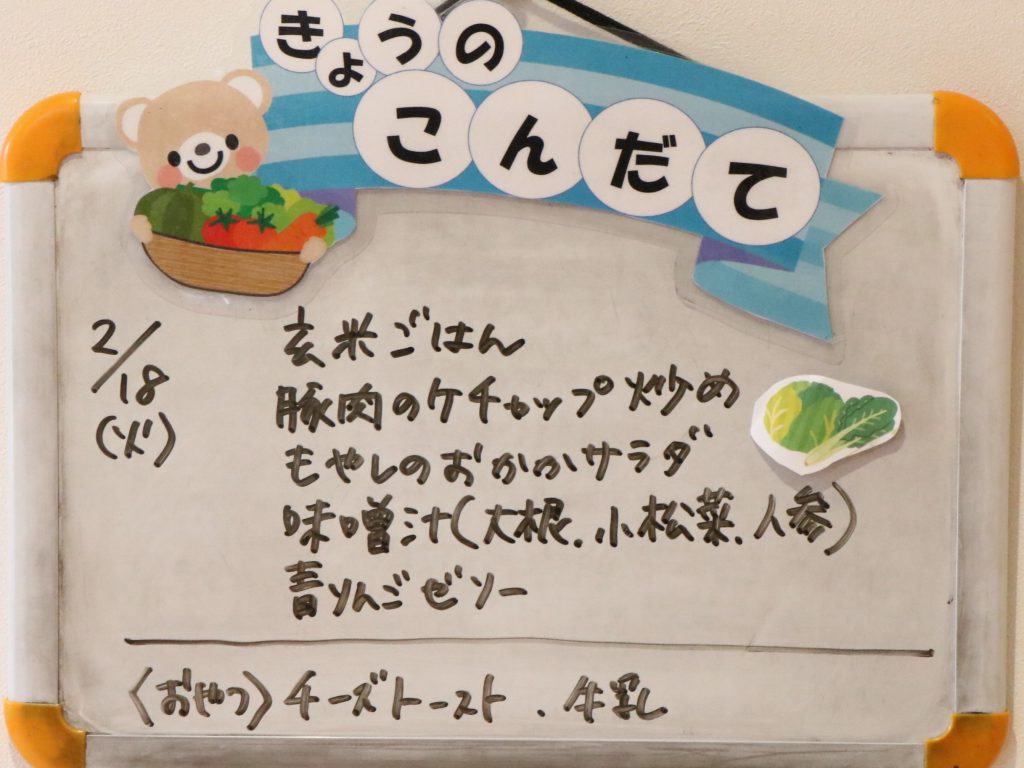 きょうの
こんだて
2/18
(火)
玄米ごはん
豚肉のケチャップ炒め
もやしのおかかサラダ
味噌汁(大根.小松菜.人参)
青りんごゼリー
〈おやつ〉チーズトースト.牛乳